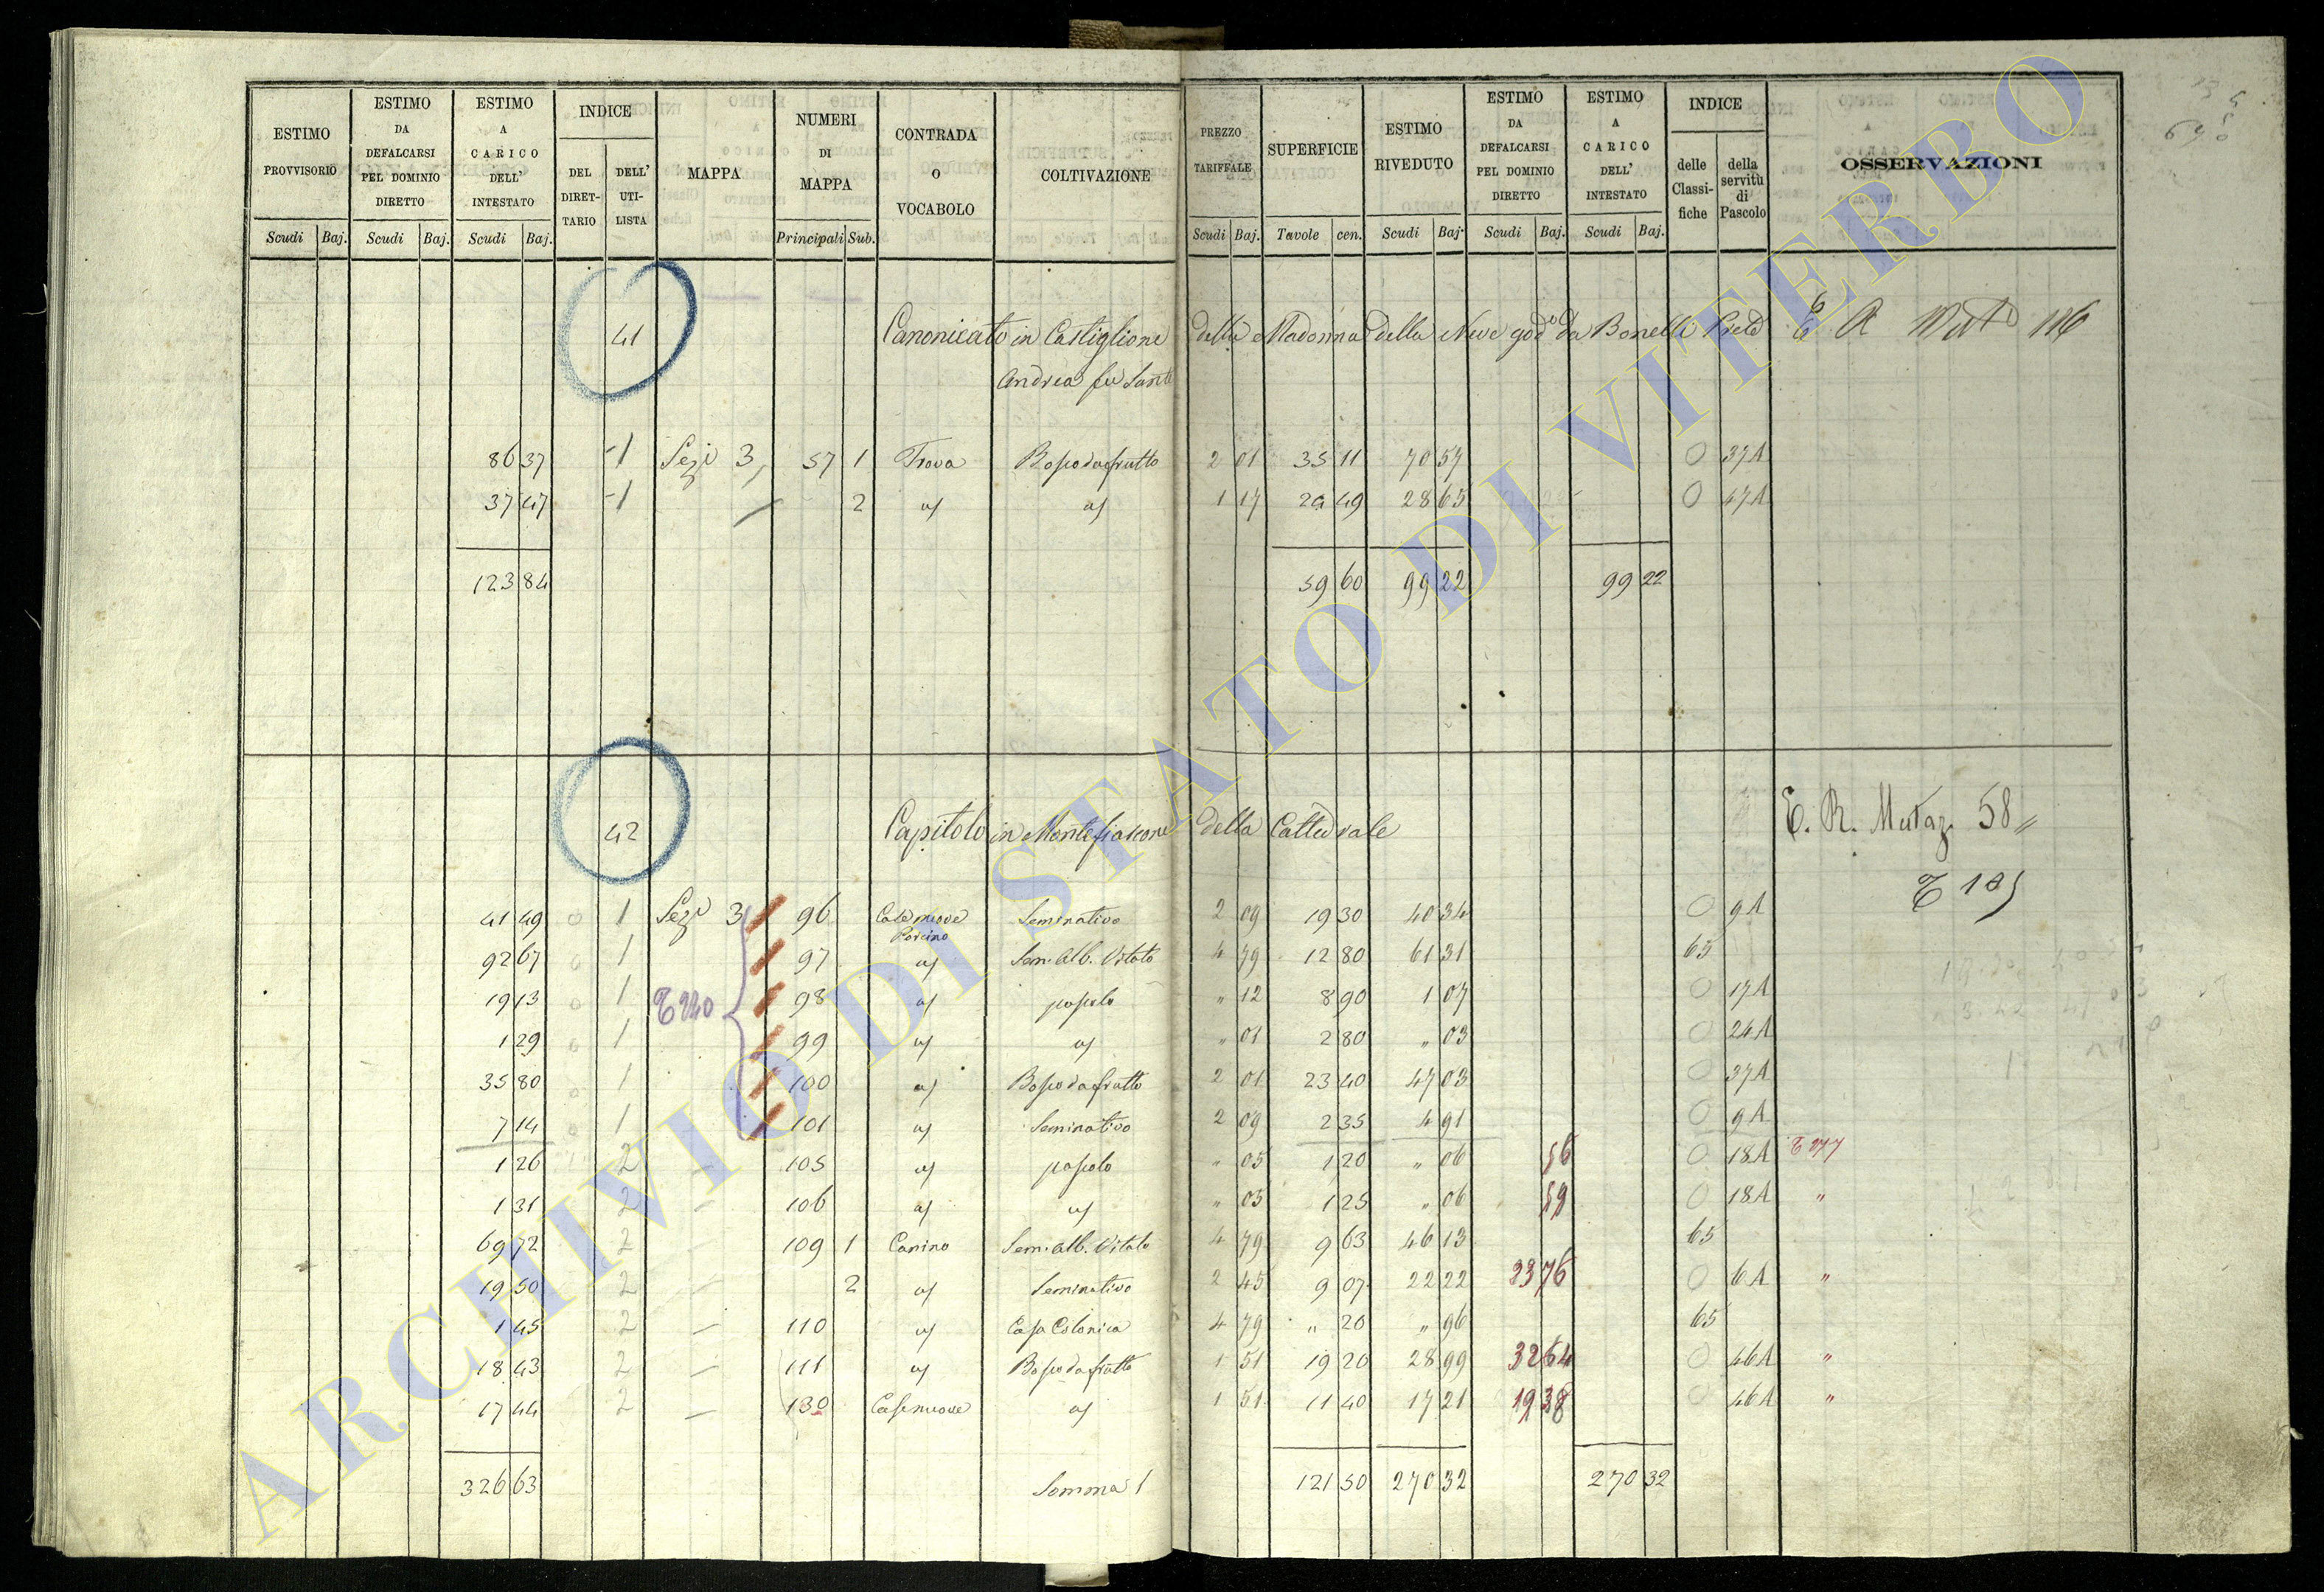 ESTIMO PROVVISORIO | ESTIMO DA DEFALCARSI PEL DOMINIO DIRETTO | ESTIMO A CARICO DELL' INTESTATO | INDICE DEL DIRET-TARIO | DELL' UTI-LISTA | MAPPA | NUMERI DI MAPPA | CONTRADA O VOCABOLO | COLTIVAZIONE | PREZZO TARIFFALE | SUPERFICIE | ESTIMO RIVEDUTO | ESTIMO DA DEFALCARSI PEL DOMINIO DIRETTO | ESTIMO A CARICO DELL' INTESTATO | INDICE delle Classi-fiche | della servitù di Pascolo | OSSERVAZIONI
Scudi Baj. Scudi Baj. Scudi Baj. Principali Sub. Scudi Baj. Tavole cen. Scudi Baj. Scudi Baj. Scudi Baj.
41 Canonicato in Castiglione della Madonna della Neve god° da Bonelli Prete 116
Andrea fu Sante
86 37 1 Sezᵉ 3 57 1 Trova Bosco da frutto 2 01 35 11 70 57 0 37A
37 47 1 2 24 49 1 17 28 65 0 47A
123 84 59 60 99 22 99 22
42 Capitolo in Montefiascone della Cattedrale E. R. Mutaz. 58
41 49 0 1 Sezᵉ 3 96 Case nuove Seminativo 2 09 19 30 40 34 0 9A
Porcino
92 67 0 1 97 Sem. Alb. Vitato 4 79 12 80 61 31 65
19 13 0 1 98 pascolo " 12 8 90 1 07 0 17A
1 29 0 1 99 " 01 2 80 " 03 0 24A
35 80 0 1 100 Bosco da frutto 2 01 23 40 47 03 0 37A
7 14 0 1 101 Seminativo 2 09 2 35 4 91 0 9A
1 26 2 105 pascolo " 05 1 20 " 06 56 0 18A
1 31 2 106 " 05 1 25 " 06 59 0 18A "
69 72 2 109 1 Canino Sem. Alb. Vitato 4 79 9 63 46 13 65
19 50 2 2 Seminativo 2 45 9 07 22 22 33 76 0 6A "
1 45 2 110 Casa Colonica 4 79 " 20 " 96 65
18 43 2 111 Bosco da frutto 1 51 19 20 28 99 32 64 0 46A "
17 44 2 130 Case nuove 1 51 11 40 17 21 19 38 0 46A "
326 63 Somma 1 121 50 270 32 270 32
ARCHIVIO DI STATO DI VITERBO